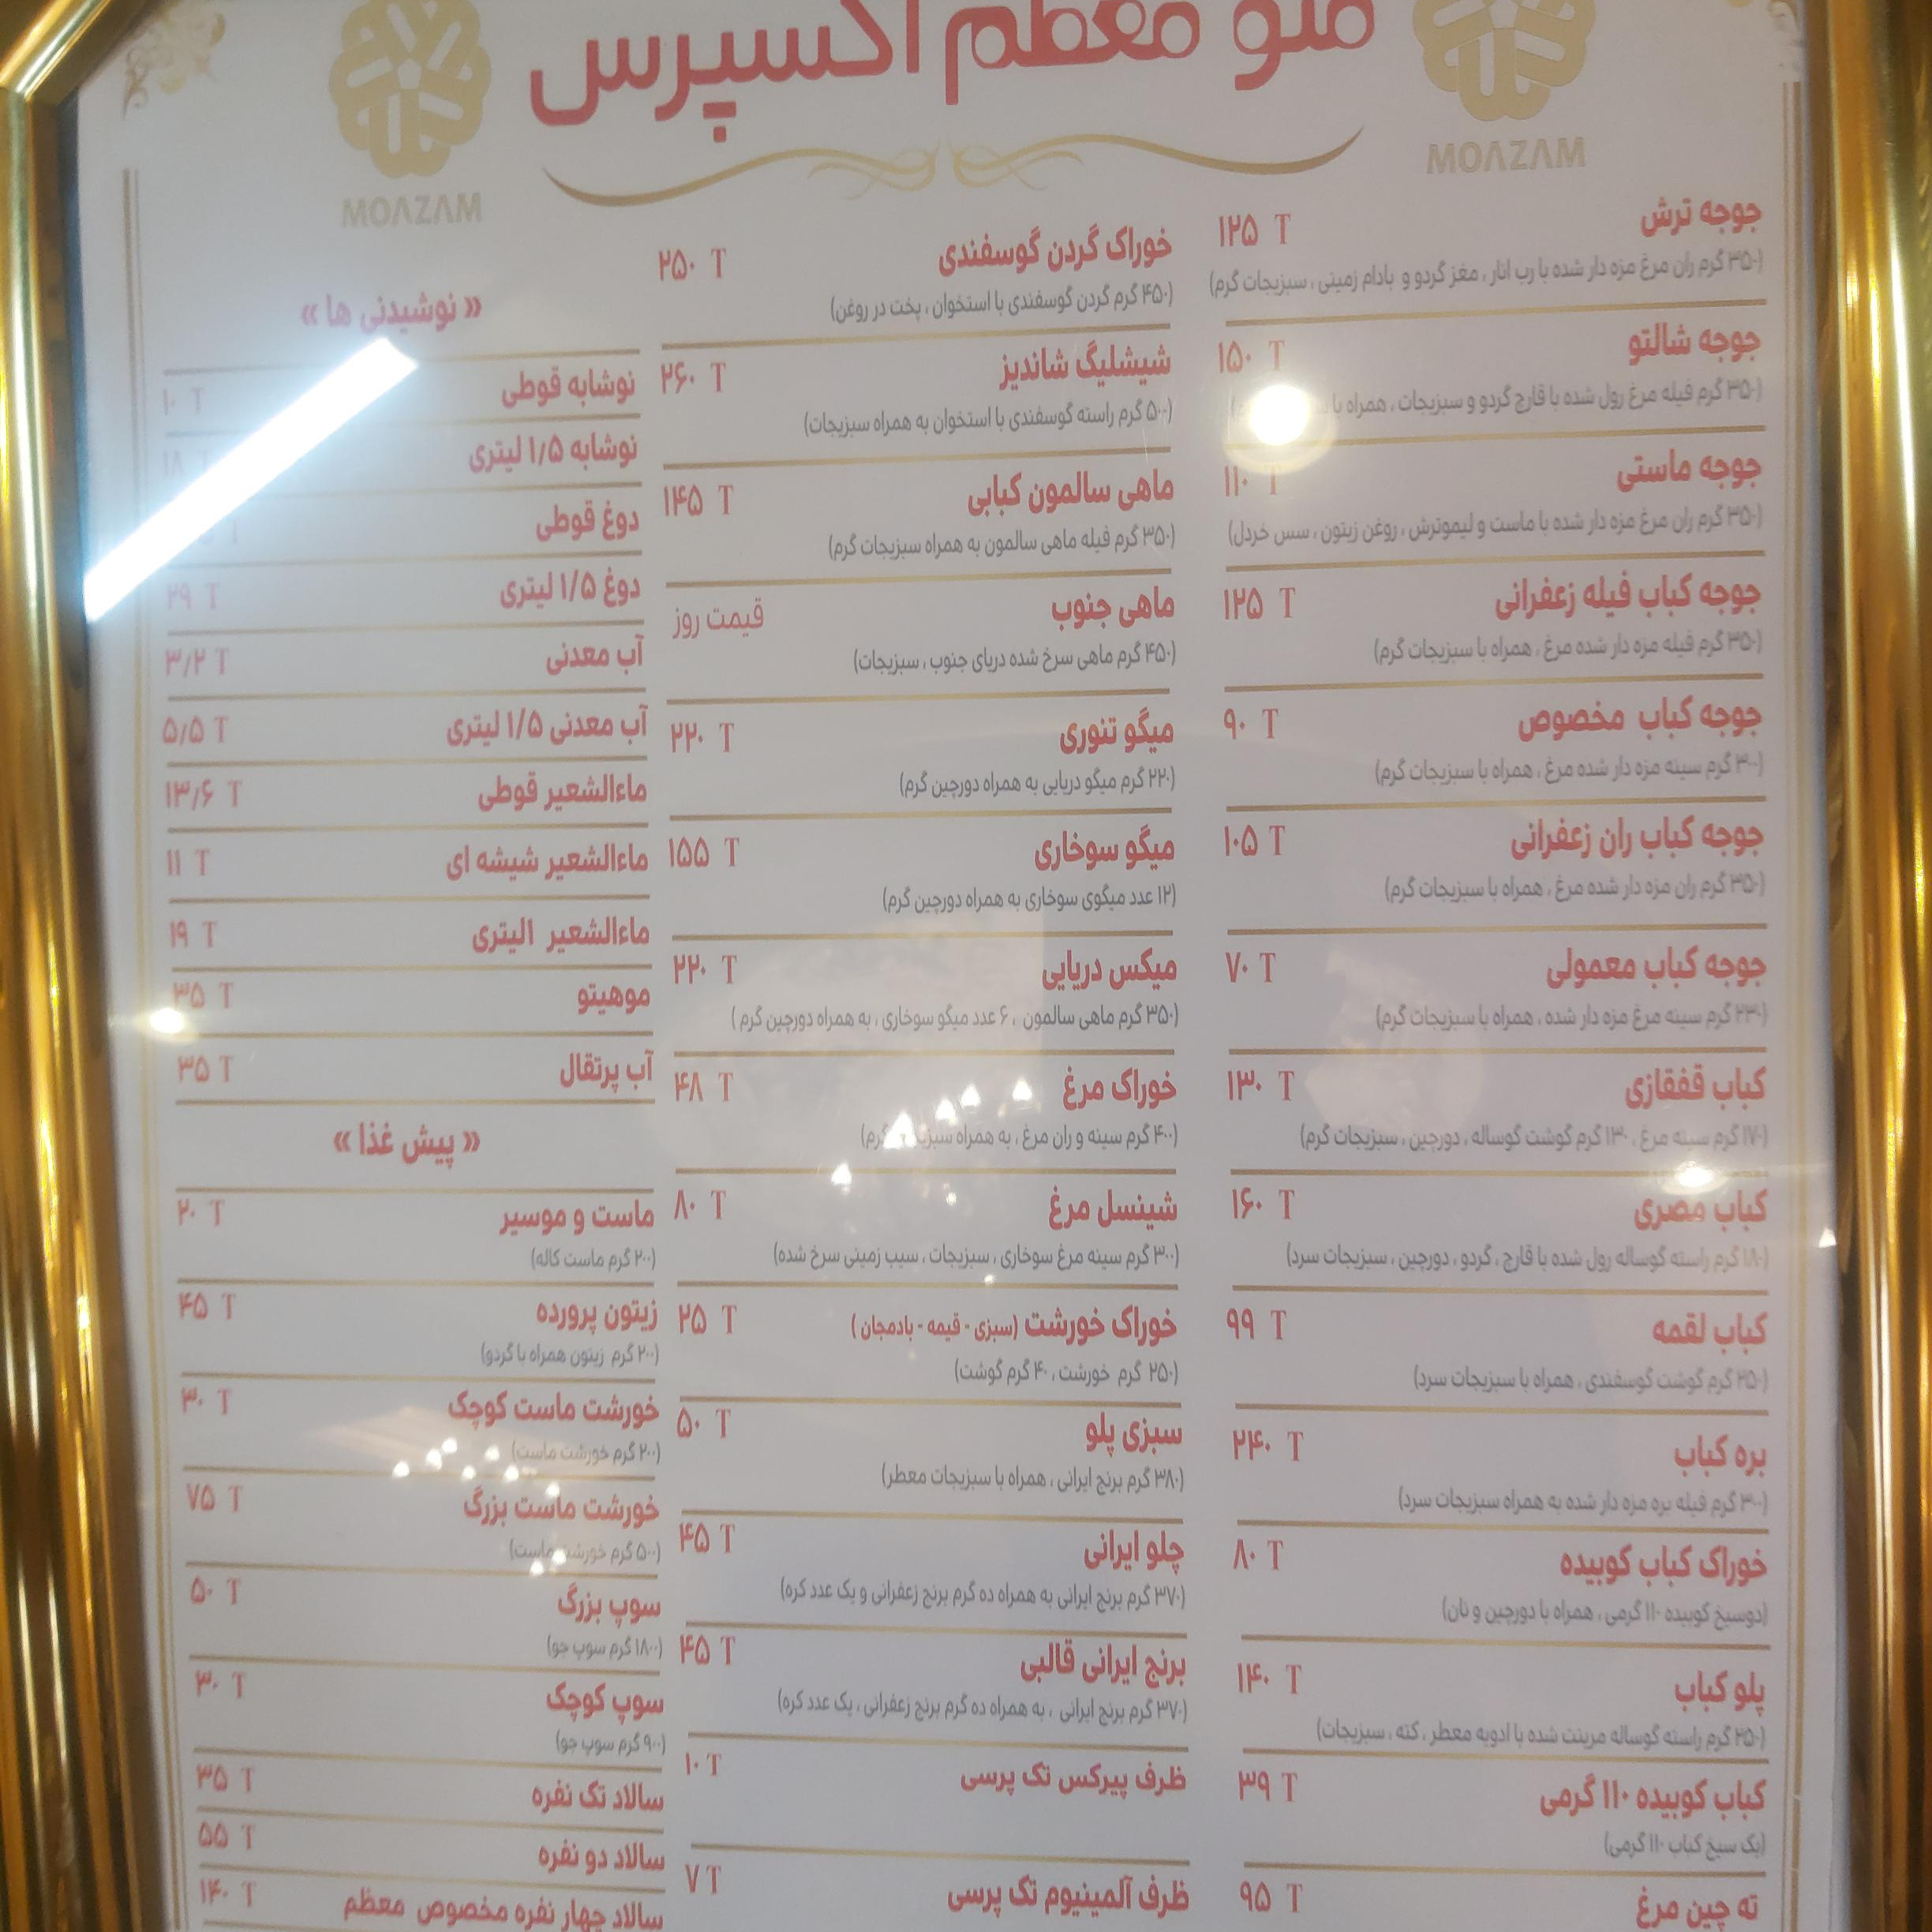 منو معظم اکسپرس
MOAZAM
MOAZAM
جوجه ترش ۱۲۵ T
(۳۵۰ گرم ران مرغ مزه دار شده با رب انار ، مغز گردو و بادام زمینی ، سبزیجات گرم)
جوجه شالتو ۱۵۰ T
(۳۵۰ گرم فیله مرغ رول شده با قارچ گردو و سبزیجات ، همراه با
جوجه ماستی ۱۱۰ T
(۳۵۰ گرم ران مرغ مزه دار شده با ماست و لیموترش ، روغن زیتون ، سس خردل)
جوجه کباب فیله زعفرانی ۱۲۵ T
(۳۵۰ گرم فیله مزه دار شده مرغ ، همراه با سبزیجات گرم)
جوجه کباب مخصوص ۹۰ T
(۳۰۰ گرم سینه مزه دار شده مرغ ، همراه با سبزیجات گرم)
جوجه کباب ران زعفرانی ۱۰۵ T
(۳۵۰ گرم ران مزه دار شده مرغ ، همراه با سبزیجات گرم)
جوجه کباب معمولی ۷۰ T
(۲۳۰ گرم سینه مرغ مزه دار شده ، همراه با سبزیجات گرم)
کباب قفقازی ۱۳۰ T
(۱۷۰ گرم سینه مرغ ، ۱۳۰ گرم گوشت گوساله ، دورچین ، سبزیجات گرم)
کباب مصری ۱۶۰ T
(۱۸۰ گرم راسته گوساله رول شده با قارچ ، گردو ، دورچین ، سبزیجات سرد)
کباب لقمه ۹۹ T
(۲۵۰ گرم گوشت گوسفندی ، همراه با سبزیجات سرد)
بره کباب ۲۴۰ T
(۳۰۰ گرم فیله بره مزه دار شده به همراه سبزیجات سرد)
خوراک کباب کوبیده ۸۰ T
(دوسیخ کوبیده ۱۱۰ گرمی ، همراه با دورچین و نان)
پلو کباب ۱۴۰ T
(۲۵۰ گرم راسته گوساله مرینت شده با ادویه معطر ، کته ، سبزیجات)
کباب کوبیده ۱۱۰ گرمی ۳۹ T
(یک سیخ کباب ۱۱۰ گرمی)
ته چین مرغ ۹۵ T
خوراک گردن گوسفندی ۲۵۰ T
(۴۵۰ گرم گردن گوسفندی با استخوان ، پخت در روغن)
شیشلیگ شاندیز ۲۶۰ T
(۵۰۰ گرم راسته گوسفندی با استخوان به همراه سبزیجات)
ماهی سالمون کبابی ۱۴۵ T
(۳۵۰ گرم فیله ماهی سالمون به همراه سبزیجات گرم)
ماهی جنوب قیمت روز
(۴۵۰ گرم ماهی سرخ شده دریای جنوب ، سبزیجات)
میگو تنوری ۲۲۰ T
(۲۲۰ گرم میگو دریایی به همراه دورچین گرم)
میگو سوخاری ۱۵۵ T
(۱۲ عدد میگوی سوخاری به همراه دورچین گرم)
میکس دریایی ۲۲۰ T
(۳۵۰ گرم ماهی سالمون ، ۶ عدد میگو سوخاری ، به همراه دورچین گرم )
خوراک مرغ ۴۸ T
(۴۰۰ گرم سینه و ران مرغ ، به همراه سبزیجات گرم)
شینسل مرغ ۸۰ T
(۳۰۰ گرم سینه مرغ سوخاری ، سبزیجات ، سیب زمینی سرخ شده)
خوراک خورشت (سبزی - قیمه - بادمجان ) ۲۵ T
(۲۵۰ گرم خورشت ، ۴۰ گرم گوشت)
سبزی پلو ۵۰ T
(۳۸۰ گرم برنج ایرانی ، همراه با سبزیجات معطر)
چلو ایرانی ۴۵ T
(۳۷۰ گرم برنج ایرانی به همراه ده گرم برنج زعفرانی و یک عدد کره)
برنج ایرانی قالبی ۴۵ T
(۳۷۰ گرم برنج ایرانی ، به همراه ده گرم برنج زعفرانی ، یک عدد کره)
ظرف پیرکس تک پرسی ۱۰ T
ظرف آلمینیوم تک پرسی ۷ T
« نوشیدنی ها »
نوشابه قوطی ۱۰ T
نوشابه ۱/۵ لیتری ۱۸ T
دوغ قوطی
دوغ ۱/۵ لیتری ۲۹ T
آب معدنی ۳/۲ T
آب معدنی ۱/۵ لیتری ۵/۵ T
ماءالشعیر قوطی ۱۳/۶ T
ماءالشعیر شیشه ای ۱۱ T
ماءالشعیر ۱لیتری ۱۹ T
موهیتو ۳۵ T
آب پرتقال ۳۵ T
« پیش غذا »
ماست و موسیر ۲۰ T
(۲۰۰ گرم ماست کاله)
زیتون پرورده ۴۵ T
(۲۰۰ گرم زیتون همراه با گردو)
خورشت ماست کوچک ۳۰ T
(۲۰۰ گرم خورشت ماست)
خورشت ماست بزرگ ۷۵ T
(۵۰۰ گرم خورشت ماست)
سوپ بزرگ ۵۰ T
(۱۸۰۰ گرم سوپ جو)
سوپ کوچک ۳۰ T
(۹۰۰ گرم سوپ جو)
سالاد تک نفره ۳۵ T
سالاد دو نفره ۵۵ T
سالاد چهار نفره مخصوص معظم ۱۴۰ T